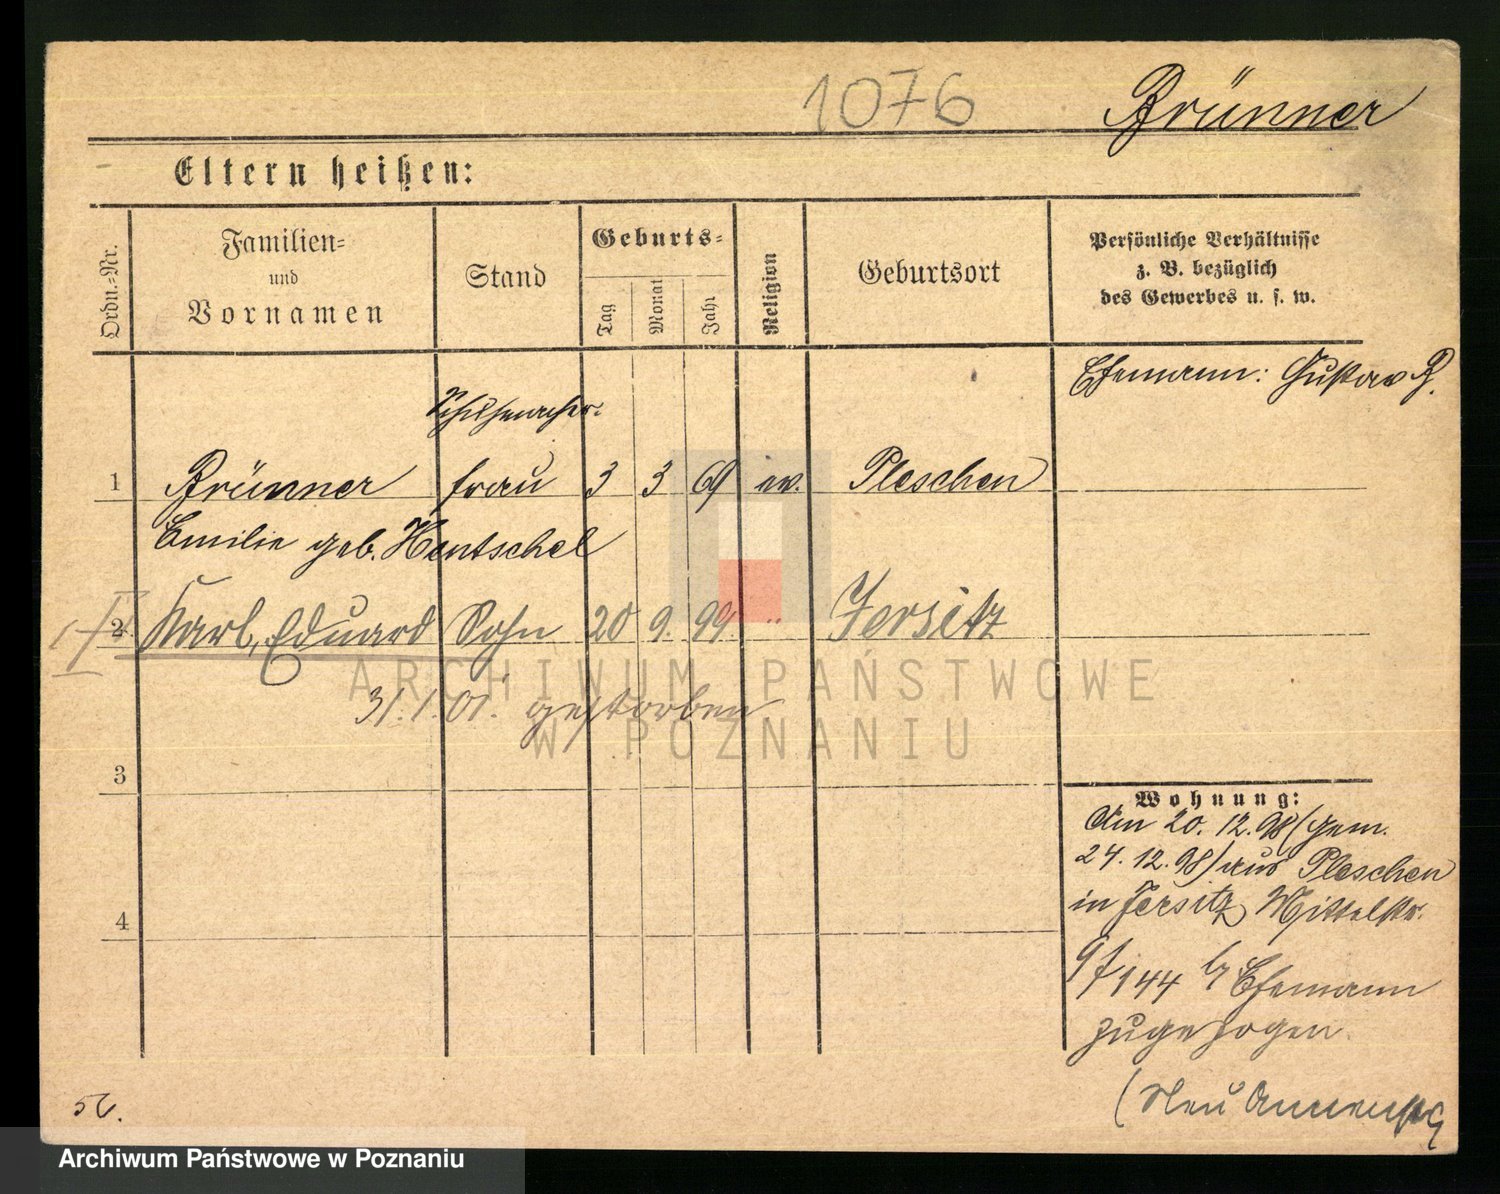 1076
Brünner
Eltern heißen:
Ordn.-Nr.
Familien-
und
Vornamen
Stand
Geburts-
Tag
Monat
Jahr
Religion
Geburtsort
Persönliche Verhältnisse
z. B. bezüglich
des Gewerbes u. s. w.
Ehemann: Gustav B.
Schuhmacher-
1 Brünner frau 3 3 69 ev. Pleschen
Emilie geb. Hentschel
2 Karl, Eduard Sohn 20 9. 99. " Jersitz
31.1.01. gestorben
3
4
Wohnung:
Am 20.12.98 (gem.
24.12.98) aus Pleschen
in Jersitz, Mittelstr.
144 Ehemann
zugezogen.
(Neu
ARCHIWUM PAŃSTWOWE
W POZNANIU
Archiwum Państwowe w Poznaniu